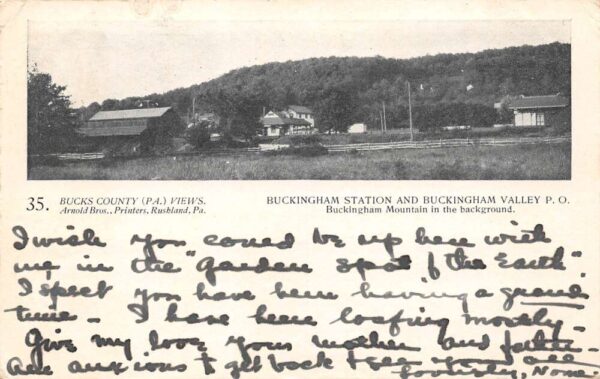 35. BUCKS COUNTY (PA.) VIEWS.
Arnold Bros., Printers, Rushland, Pa.
BUCKINGHAM STATION AND BUCKINGHAM VALLEY P. O.
Buckingham Mountain in the background.
I wish you could be up here with
me in the "Garden spot of the Earth".
I spect you have been having a grand
time - I have been loafing mostly -
Give my love your mother and father -
Am anxious to get back & see you all
Lovingly,